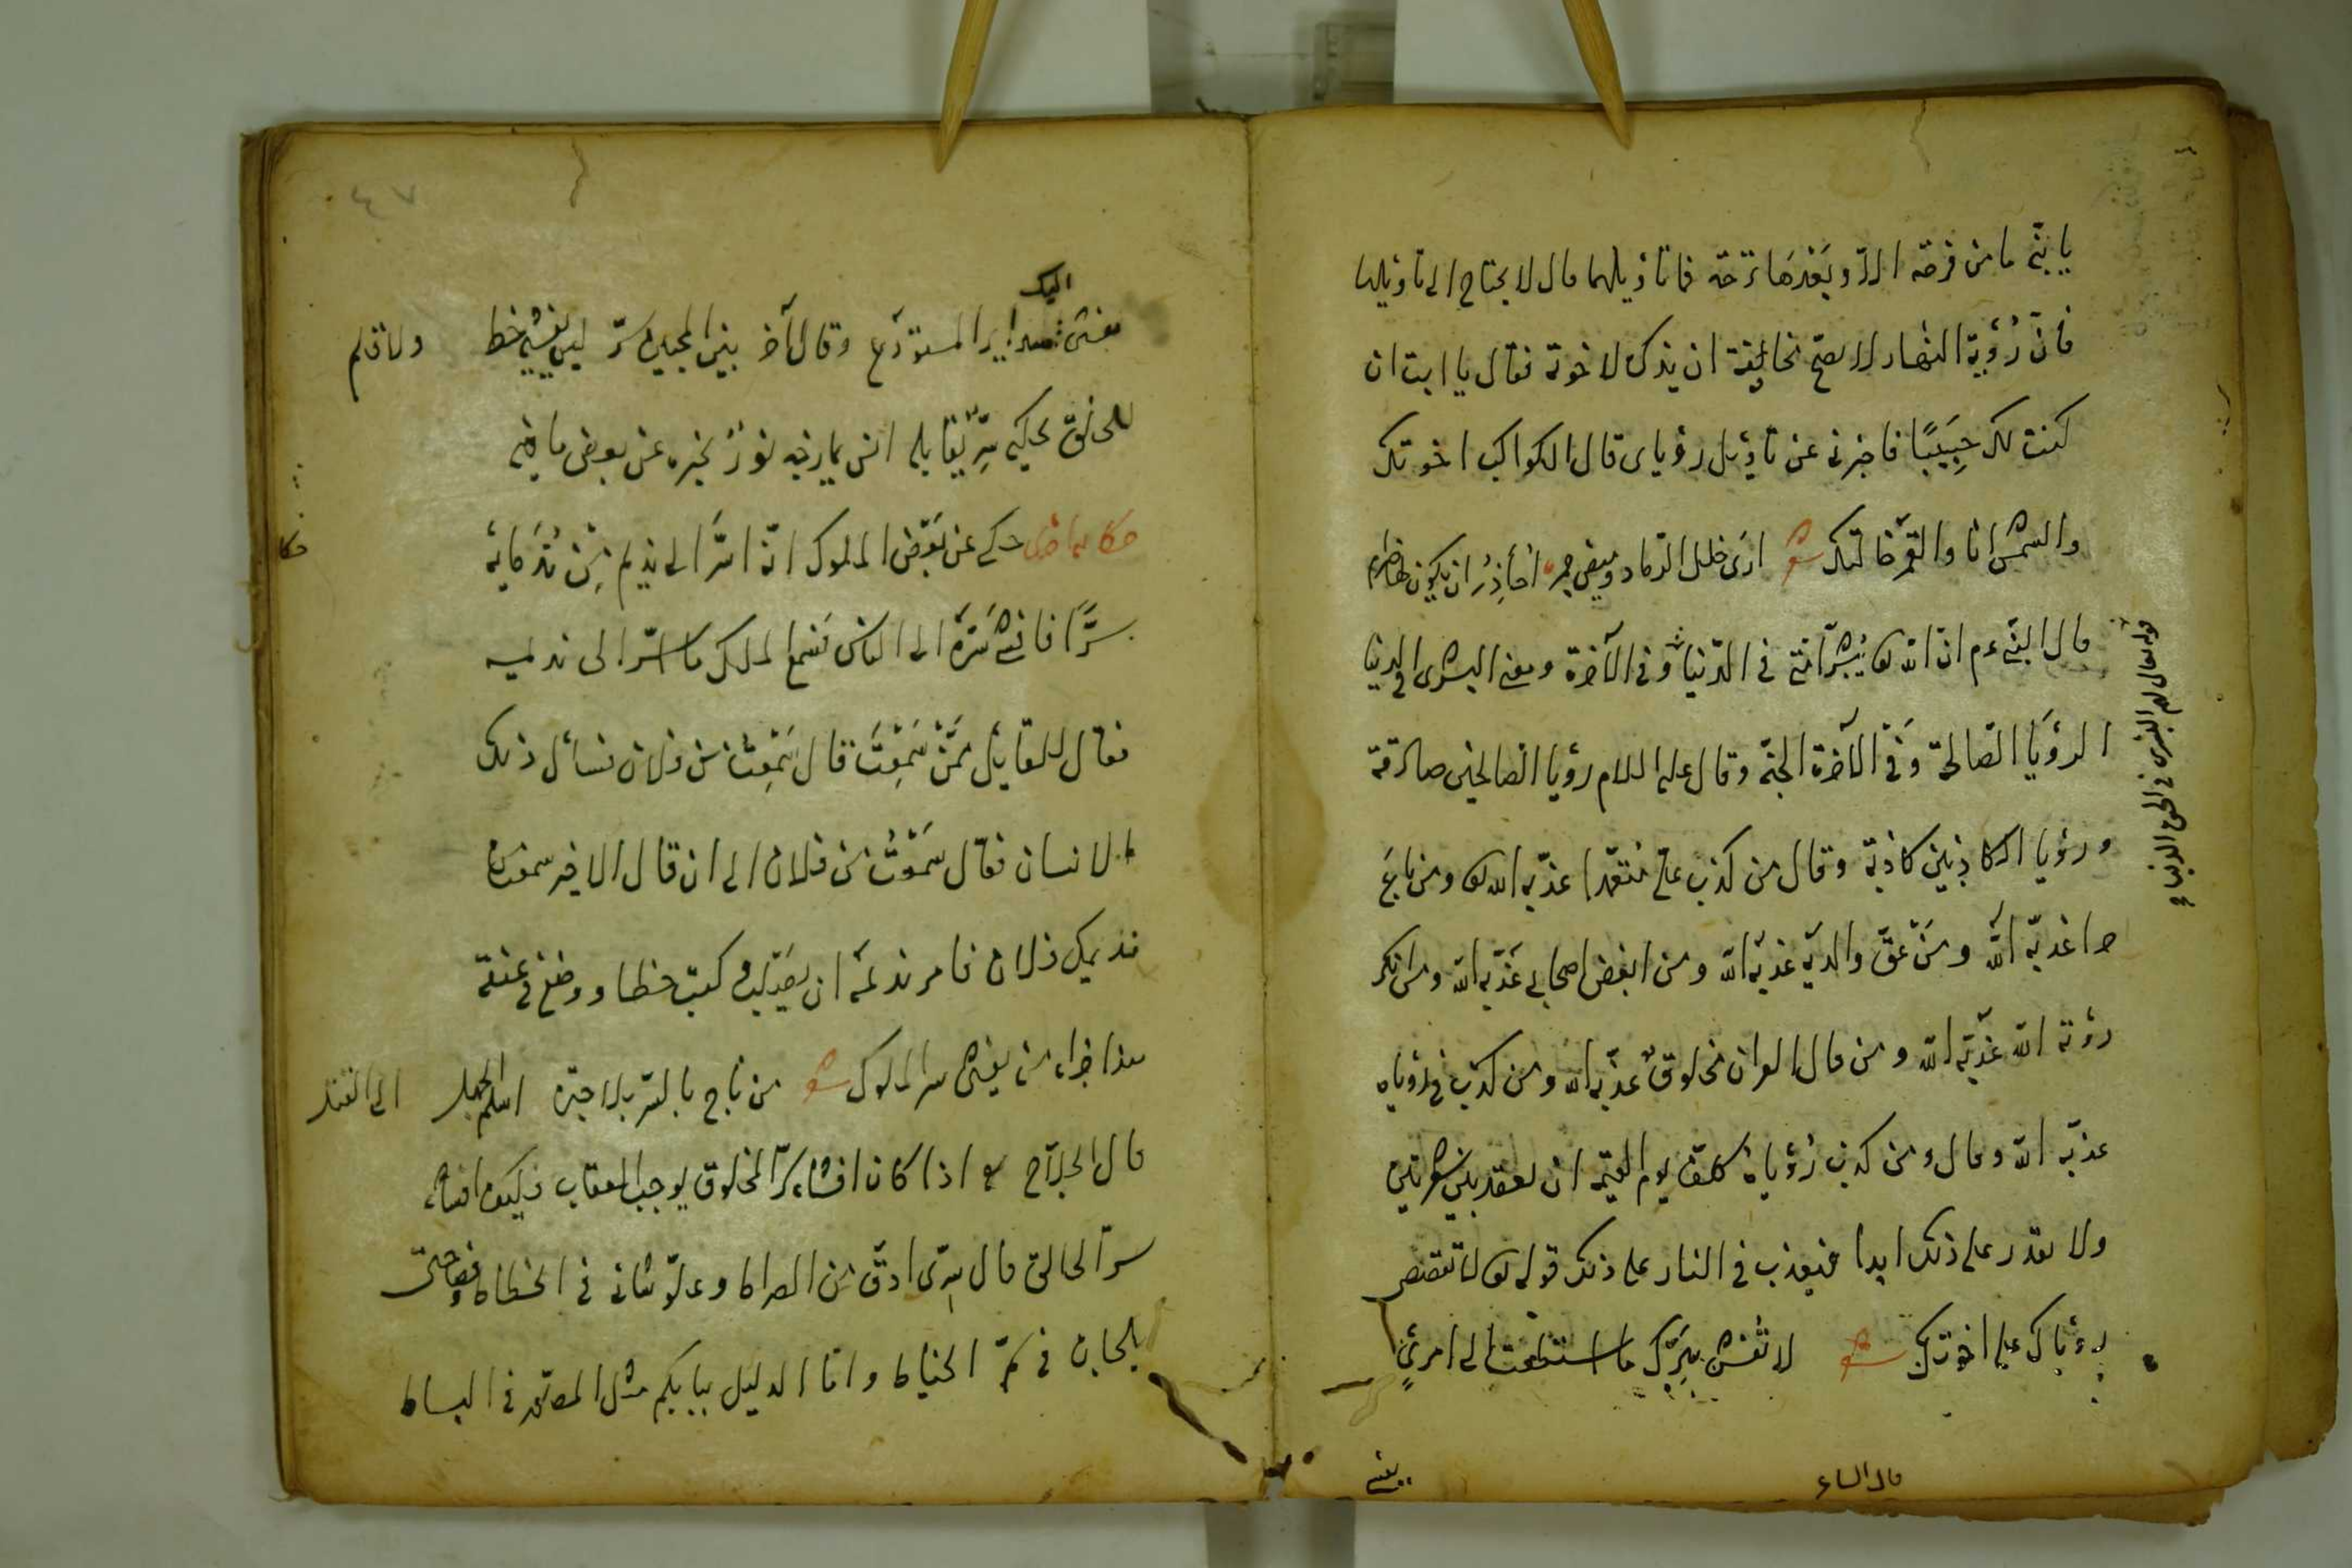 يا بنّي ما من فرحة الا و بَعْدَهَا ترحة فما تأويلهما قال لا يحتاج الى تأويلها
فانّ رُؤية النهار لا يصحّ مخافة ان يذكر لاخوته فقال يا ابت ان
كنت لك حِبَيبًا فاخبرنى عن تأويل رؤياى قال الكواكب اخوتك
والشمس انا والقمر خالتك شعر ارى خلل الرماد وميض جمر احاذر ان يكون لها ضرام
قال النبيّ عم انّ الله تعا يُبشّر أمّتى فى الدّنيا وفى الآخرة ومعنى البشرى فى الدنيا
الرؤيا الصّالحة وفى الآخرة الجنّة وقال عليه السلام رؤيا الصالحين صادقة
ورؤيا الكاذبين كاذبة وقال من كذب علىّ متعمّدا عذّبه الله تعا ومن باع
حرا عذبه الله ومَنْ عقّ والديه عذبه الله ومن ابغض اصحابى عَذّبه الله ومن انكر
رؤية الله عذّبه الله ومن قال القران مخلوق عذّبه الله ومن كذب فى رؤياه
عذبه الله وقال ومن كذب رُؤياهُ كلّف يوم القيمة ان يعقد بين شعرتين
ولا يقدر على ذلك ابدا فيعذب فى النار على ذلك قوله تعا لا تقصص
رؤياك على اخوتك شعر لا تفش بسِرّك ما استطعت الى امرئٍ
يفشى
قال الشاعر
قوله تعالى لهم البشرى فى الحيوة الدنيا
٤٧
يفشى اليك سراير المستودع وقال آخر بين المحبين سرّ ليس يفشيه خط ولا قلم
للخلق يحكيه سِرّ يقابله انس يمازجه نورٌ يخبره عن بعض ما فيه
حكاية اخرى حكى عن بَعْض الملوك انّه اسَرَّ الى نديم مِن نُدَمايه
سرًّا فافشى سَرّهُ الى الناس فسَمع الملك ما اسرّ الى نديمه
فقال للقايل ممّن سَمِعْتَ قال سَمِعْتُ من فلان فسأل ذلك
الانسان فقال سَمعْتُ من فلان الى ان قال الاخير سمعت
نديمك فلان فامر نديمه ان يصلب وكتب خطا ووضع فى عنقه
هذا جزاء من يفشى سر الملوك شعر من باح بالسّر بلا حجّة اسلم الجهل الى القتل
قال الحلّاج اذا كان افشاء سرّ المخلوق يوجب العقاب فكيف افشاء
سرّ الخالق قال سِرّى ادقّ من الصراط وعلوّ شانى فى انحطاط
بالجان فى سمّ الخياط وانا الدليل ببابكم مثل المصوّر فى البساط
حكا